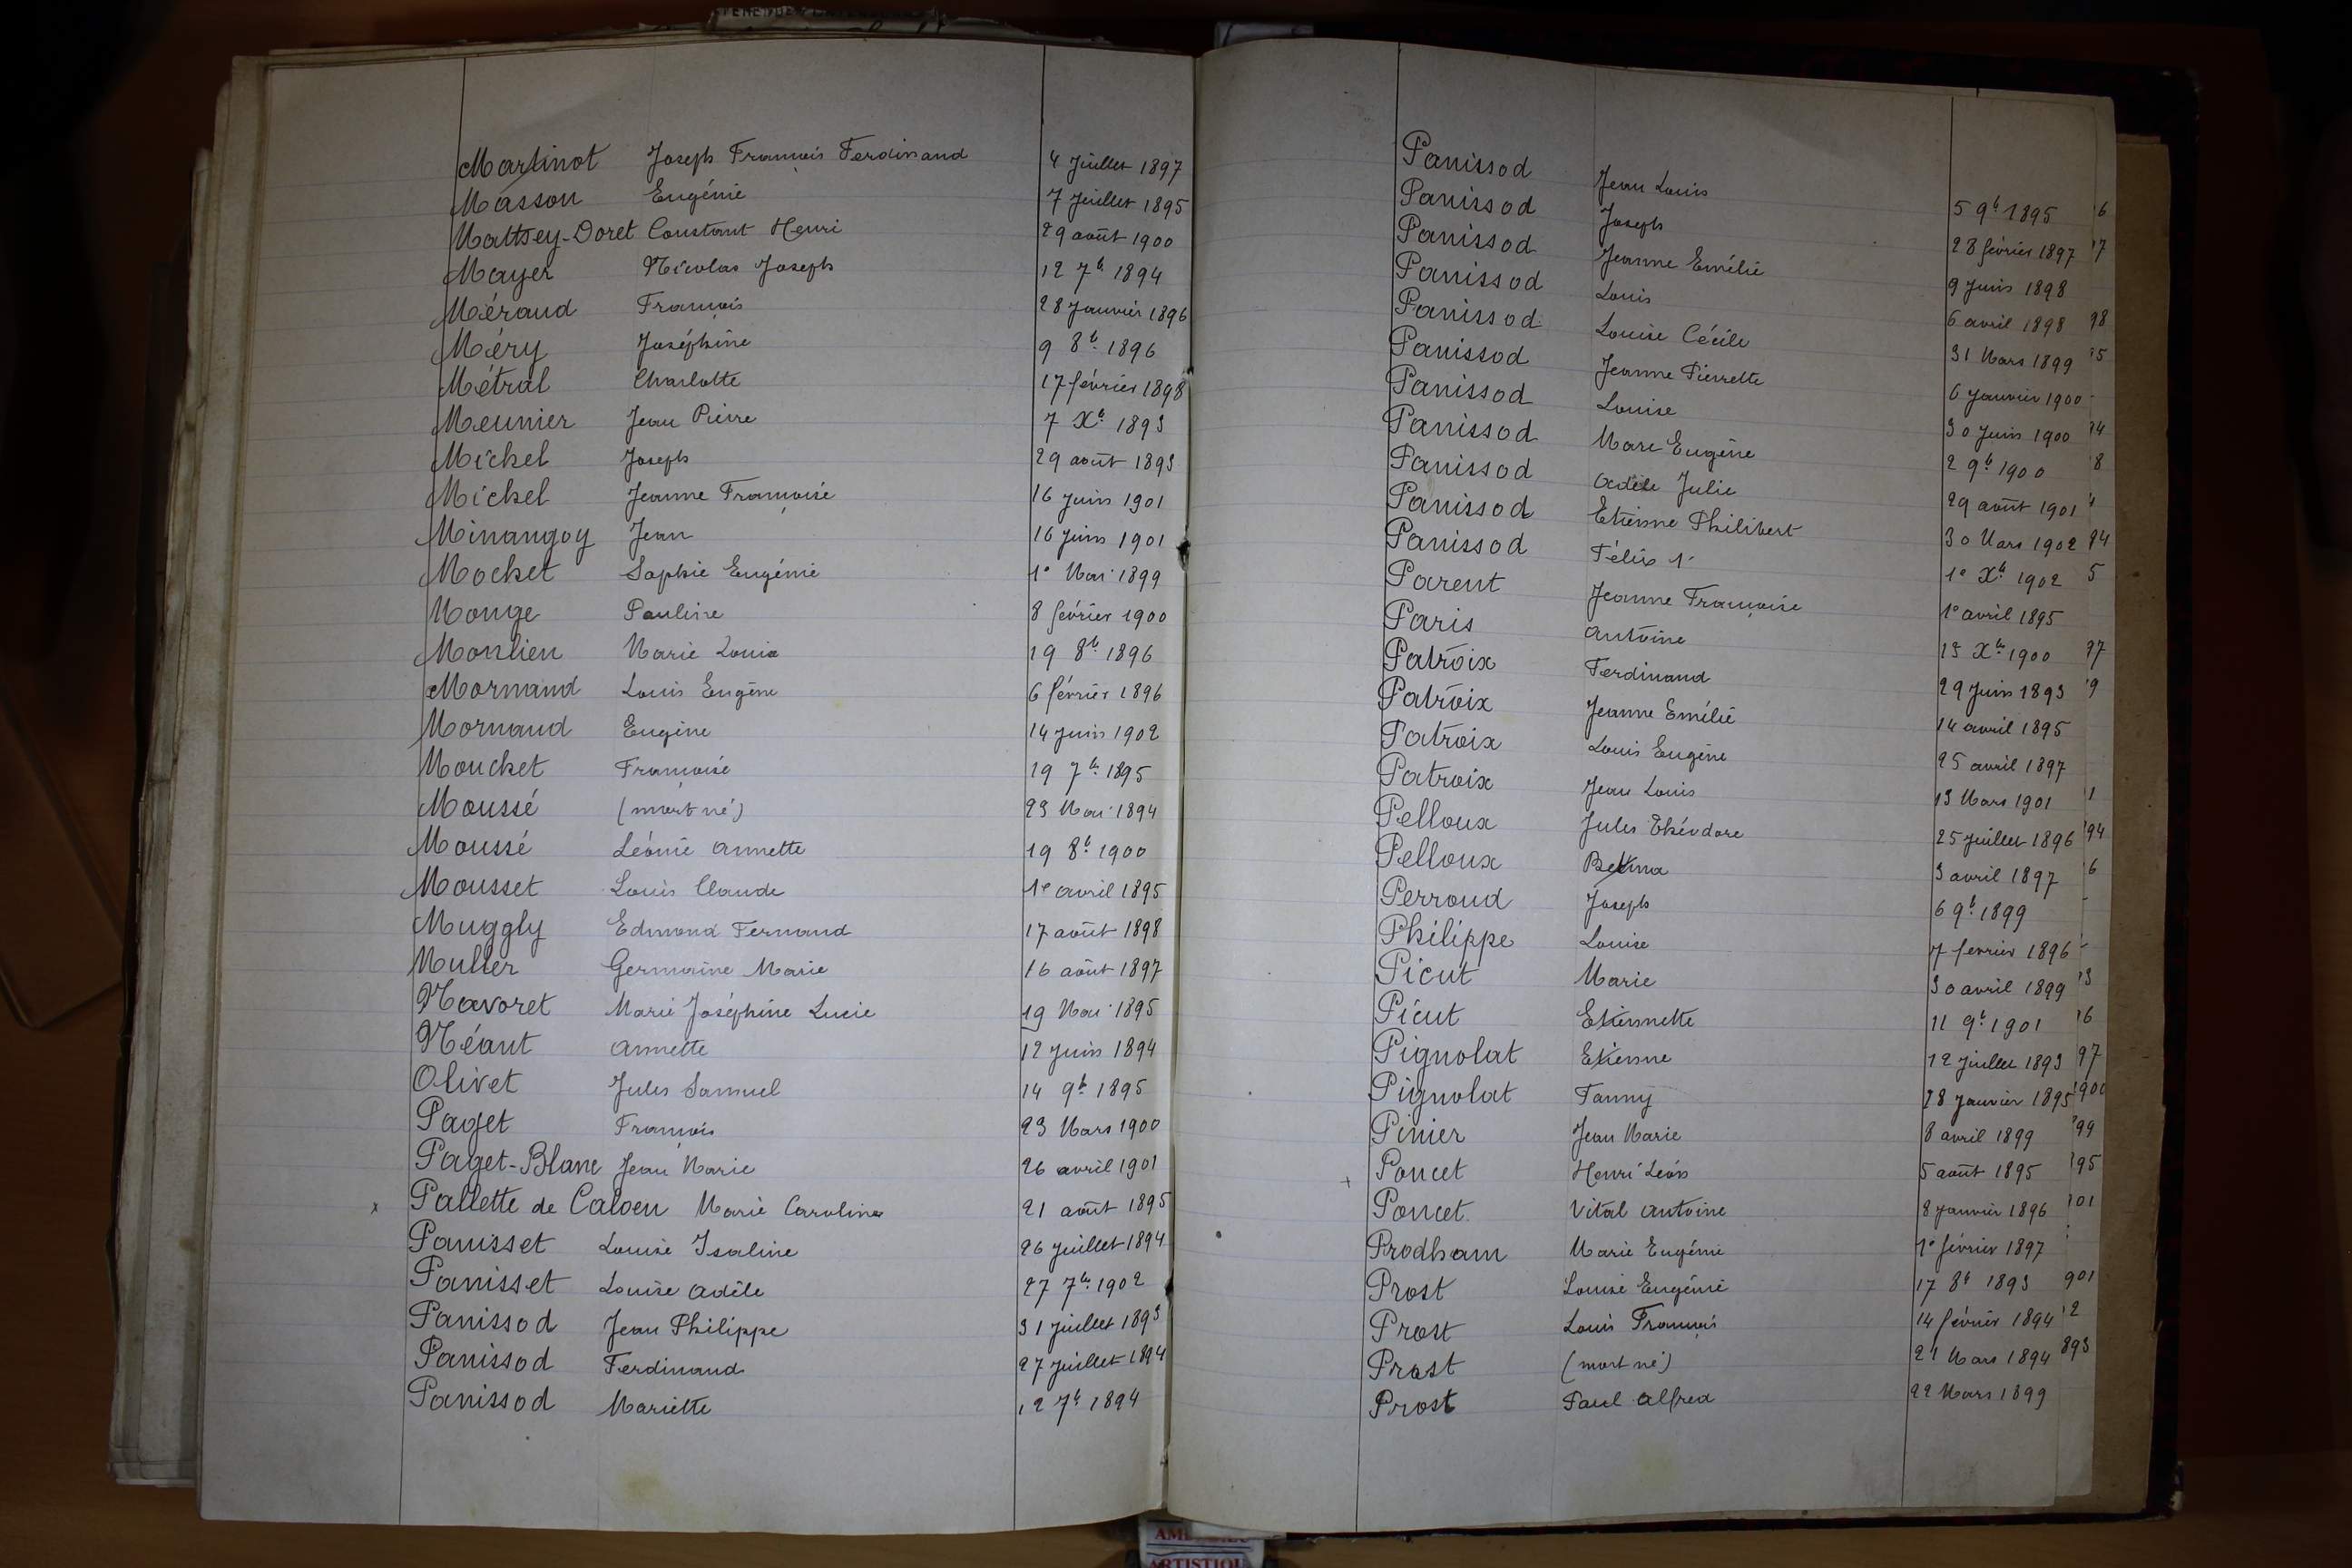 Martinot Joseph François Ferdinand 4 Juillet 1897
Masson Eugénie 7 Juillet 1895
Matthey-Doret Constant Henri 29 août 1900
Mayer Nicolas Joseph 12 7b 1894
Méraud François 28 Janvier 1896
Méry Joséphine 9 8b 1896
Métral Charlotte 17 février 1898
Meunier Jean Pierre 7 Xb 1893
Michel Joseph 29 août 1893
Michel Jeanne Françoise 16 Juin 1901
Minangoy Jean 16 Juin 1901
Mochet Sophie Eugénie 1e Mai 1899
Monge Pauline 8 février 1900
Monlien Marie Louise 19 8b 1896
Mornand Louis Eugène 6 février 1896
Mornand Eugène 14 Juin 1902
Mouchet Françoise 19 7b 1895
Moussé (mort né) 23 Mai 1894
Moussé Léonie Annette 19 8b 1900
Mousset Louis Claude 1e avril 1895
Muggly Edmond Fernand 17 août 1898
Muller Germaine Marie 16 août 1897
Navoret Marie Joséphine Lucie 19 Mai 1895
Néant Annette 12 Juin 1894
Olivet Jules Samuel 14 9b 1895
Paget François 23 Mars 1900
Paget-Blanc Jean Marie 26 avril 1901
x Pallette de Caloen Marie Caroline 21 août 1895
Panisset Louise Isaline 26 Juillet 1894
Panisset Louise Adèle 27 7b 1902
Panissod Jean Philippe 31 Juillet 1893
Panissod Ferdinand 27 Juillet 1894
Panissod Mariette 12 7b 1894
Panissod Jean Louis 5 9b 1895 6
Panissod Joseph 28 février 1897 7
Panissod Jeanne Emélie 9 Juin 1898
Panissod Louis 6 avril 1898 98
Panissod Louise Cécile 31 Mars 1899 5
Panissod Jeanne Pierrette 6 Janvier 1900
Panissod Louise 30 Juin 1900 94
Panissod Marc Eugène 2 9b 1900 8
Panissod Adèle Julie 29 août 1901
Panissod Etienne Philibert 30 Mars 1902 94
Panissod Félix 1e Xb 1902 5
Parent Jeanne Françoise 1e avril 1895
Paris Antoine 13 Xb 1900 97
Patroix Ferdinand 29 Juin 1893 9
Patroix Jeanne Emélie 14 avril 1895
Patroix Louis Eugène 25 avril 1897
Patroix Jean Louis 13 Mars 1901 1
Pelloux Jules Théodore 25 Juillet 1896 94
Pelloux Betina 3 avril 1897 6
Perroud Joseph 6 9b 1899
Philippe Louise 7 fevrier 1896
Picut Marie 30 avril 1899 3
Picut Etiennette 11 9b 1901 6
Pignolat Etienne 12 Juillet 1893 97
Pignolat Fanny 28 Janvier 1895 1900
Pinier Jean Marie 8 avril 1899 99
+ Poncet Henri Léon 5 août 1895 95
Poncet Vital Antoine 8 Janvier 1896 01
Prodham Marie Eugénie 1e février 1897
Prost Louise Eugénie 17 8b 1893 901
Prost Louis François 14 février 1894 2
Prost (mort né) 21 Mars 1894 893
Prost Paul Alfred 22 Mars 1899
ARTISTIQU